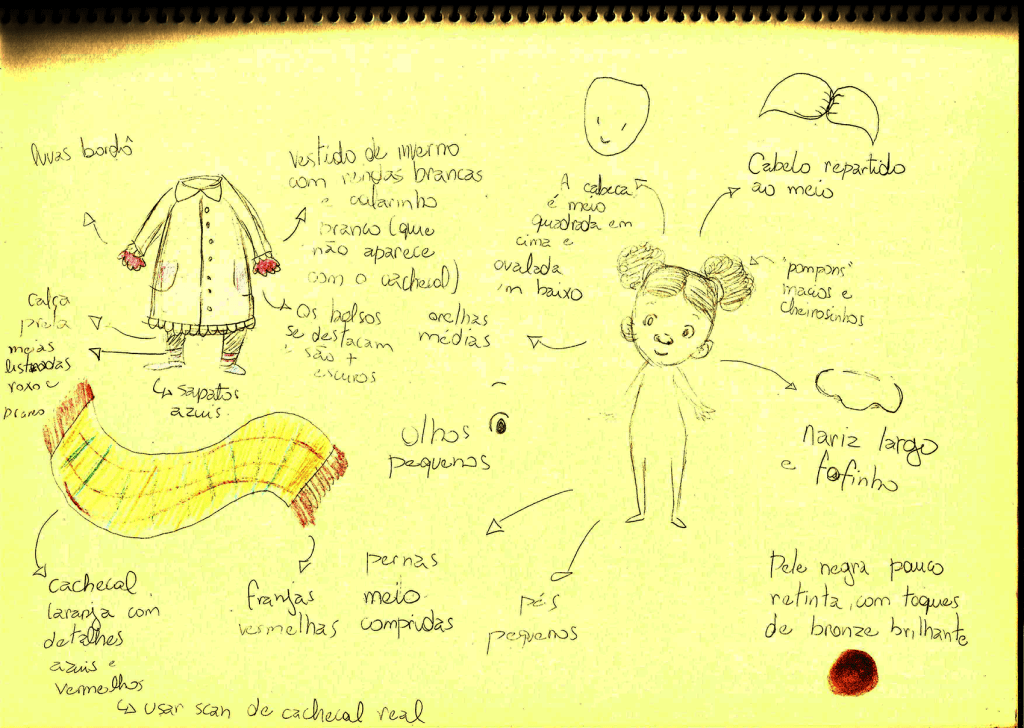 luvas bordô
vestido de inverno
com rendas brancas
e colarinho
branco (que
não aparece
com o cachecol)
A cabeca
é meio
quadrada em
cima e
ovalada
em baixo
Cabelo repartido
ao meio
"pompons"
macios e
cheirosinhos
calça
preta
meias
listradas
roxo e
Os bolsos
se destacam
e são +
escuros
orelhas
médias
↳ sapatos
azuis.
Olhos
pequenos
nariz largo
e fofinho
cachecol
laranja com
detalhes
azuis e
vermelhos
↳ usar scan de cachecol real
franjas
vermelhas
pernas
meio
compridas
pés
pequenos
Pele negra pouco
retinta, com toques
de bronze brilhante